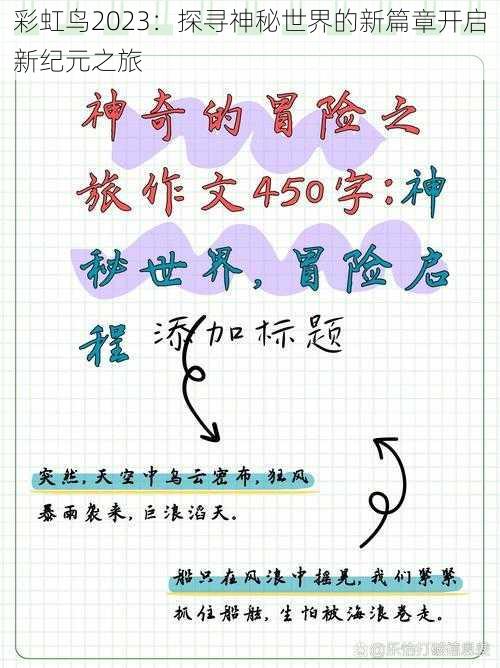 彩虹鸟2023：探寻神秘世界的新篇章开启
新纪元之旅
神奇的冒险之
旅作文450字:神
秘世界,冒险启
程 添加标题
突然,天空中乌云密布,狂风
暴雨袭来,巨浪滔天。
船只在风浪中摇晃,我们紧紧
抓住船舷,生怕被海浪卷走。